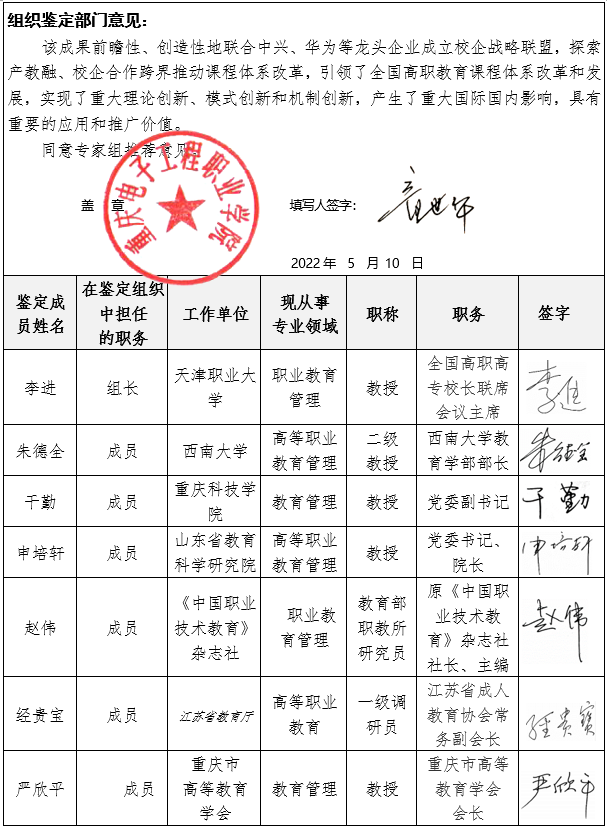 组织鉴定部门意见：
该成果前瞻性、创造性地联合中兴、华为等龙头企业成立校企战略联盟，探索
产教融、校企合作跨界推动课程体系改革，引领了全国高职教育课程体系改革和发
展，实现了重大理论创新、模式创新和机制创新，产生了重大国际国内影响，具有
重要的应用和推广价值。
同意专家组推荐意见。
重庆电子工程职业学院
盖 章 填写人签字：
2022年 5 月 10 日
鉴定成员姓名 在鉴定组织中担任的职务 工作单位 现从事专业领域 职称 职务 签字
李进 组长 天津职业大学 职业教育管理 教授 全国高职高专校长联席会议主席 李进
朱德全 成员 西南大学 高等职业教育管理 二级教授 西南大学教育学部部长 朱德全
干勤 成员 重庆科技学院 教育管理 教授 党委副书记 干勤
申培轩 成员 山东省教育科学研究院 高等职业教育管理 教授 党委书记、院长 申培轩
赵伟 成员 《中国职业技术教育》杂志社 职业教育管理 教育部职教所研究员 原《中国职业技术教育》杂志社社长、主编 赵伟
经贵宝 成员 江苏省教育厅 高等职业教育 一级调研员 江苏省成人教育协会常务副会长 经贵宝
严欣平 成员 重庆市高等教育学会 教育管理 教授 重庆市高等教育学会会长 严欣平